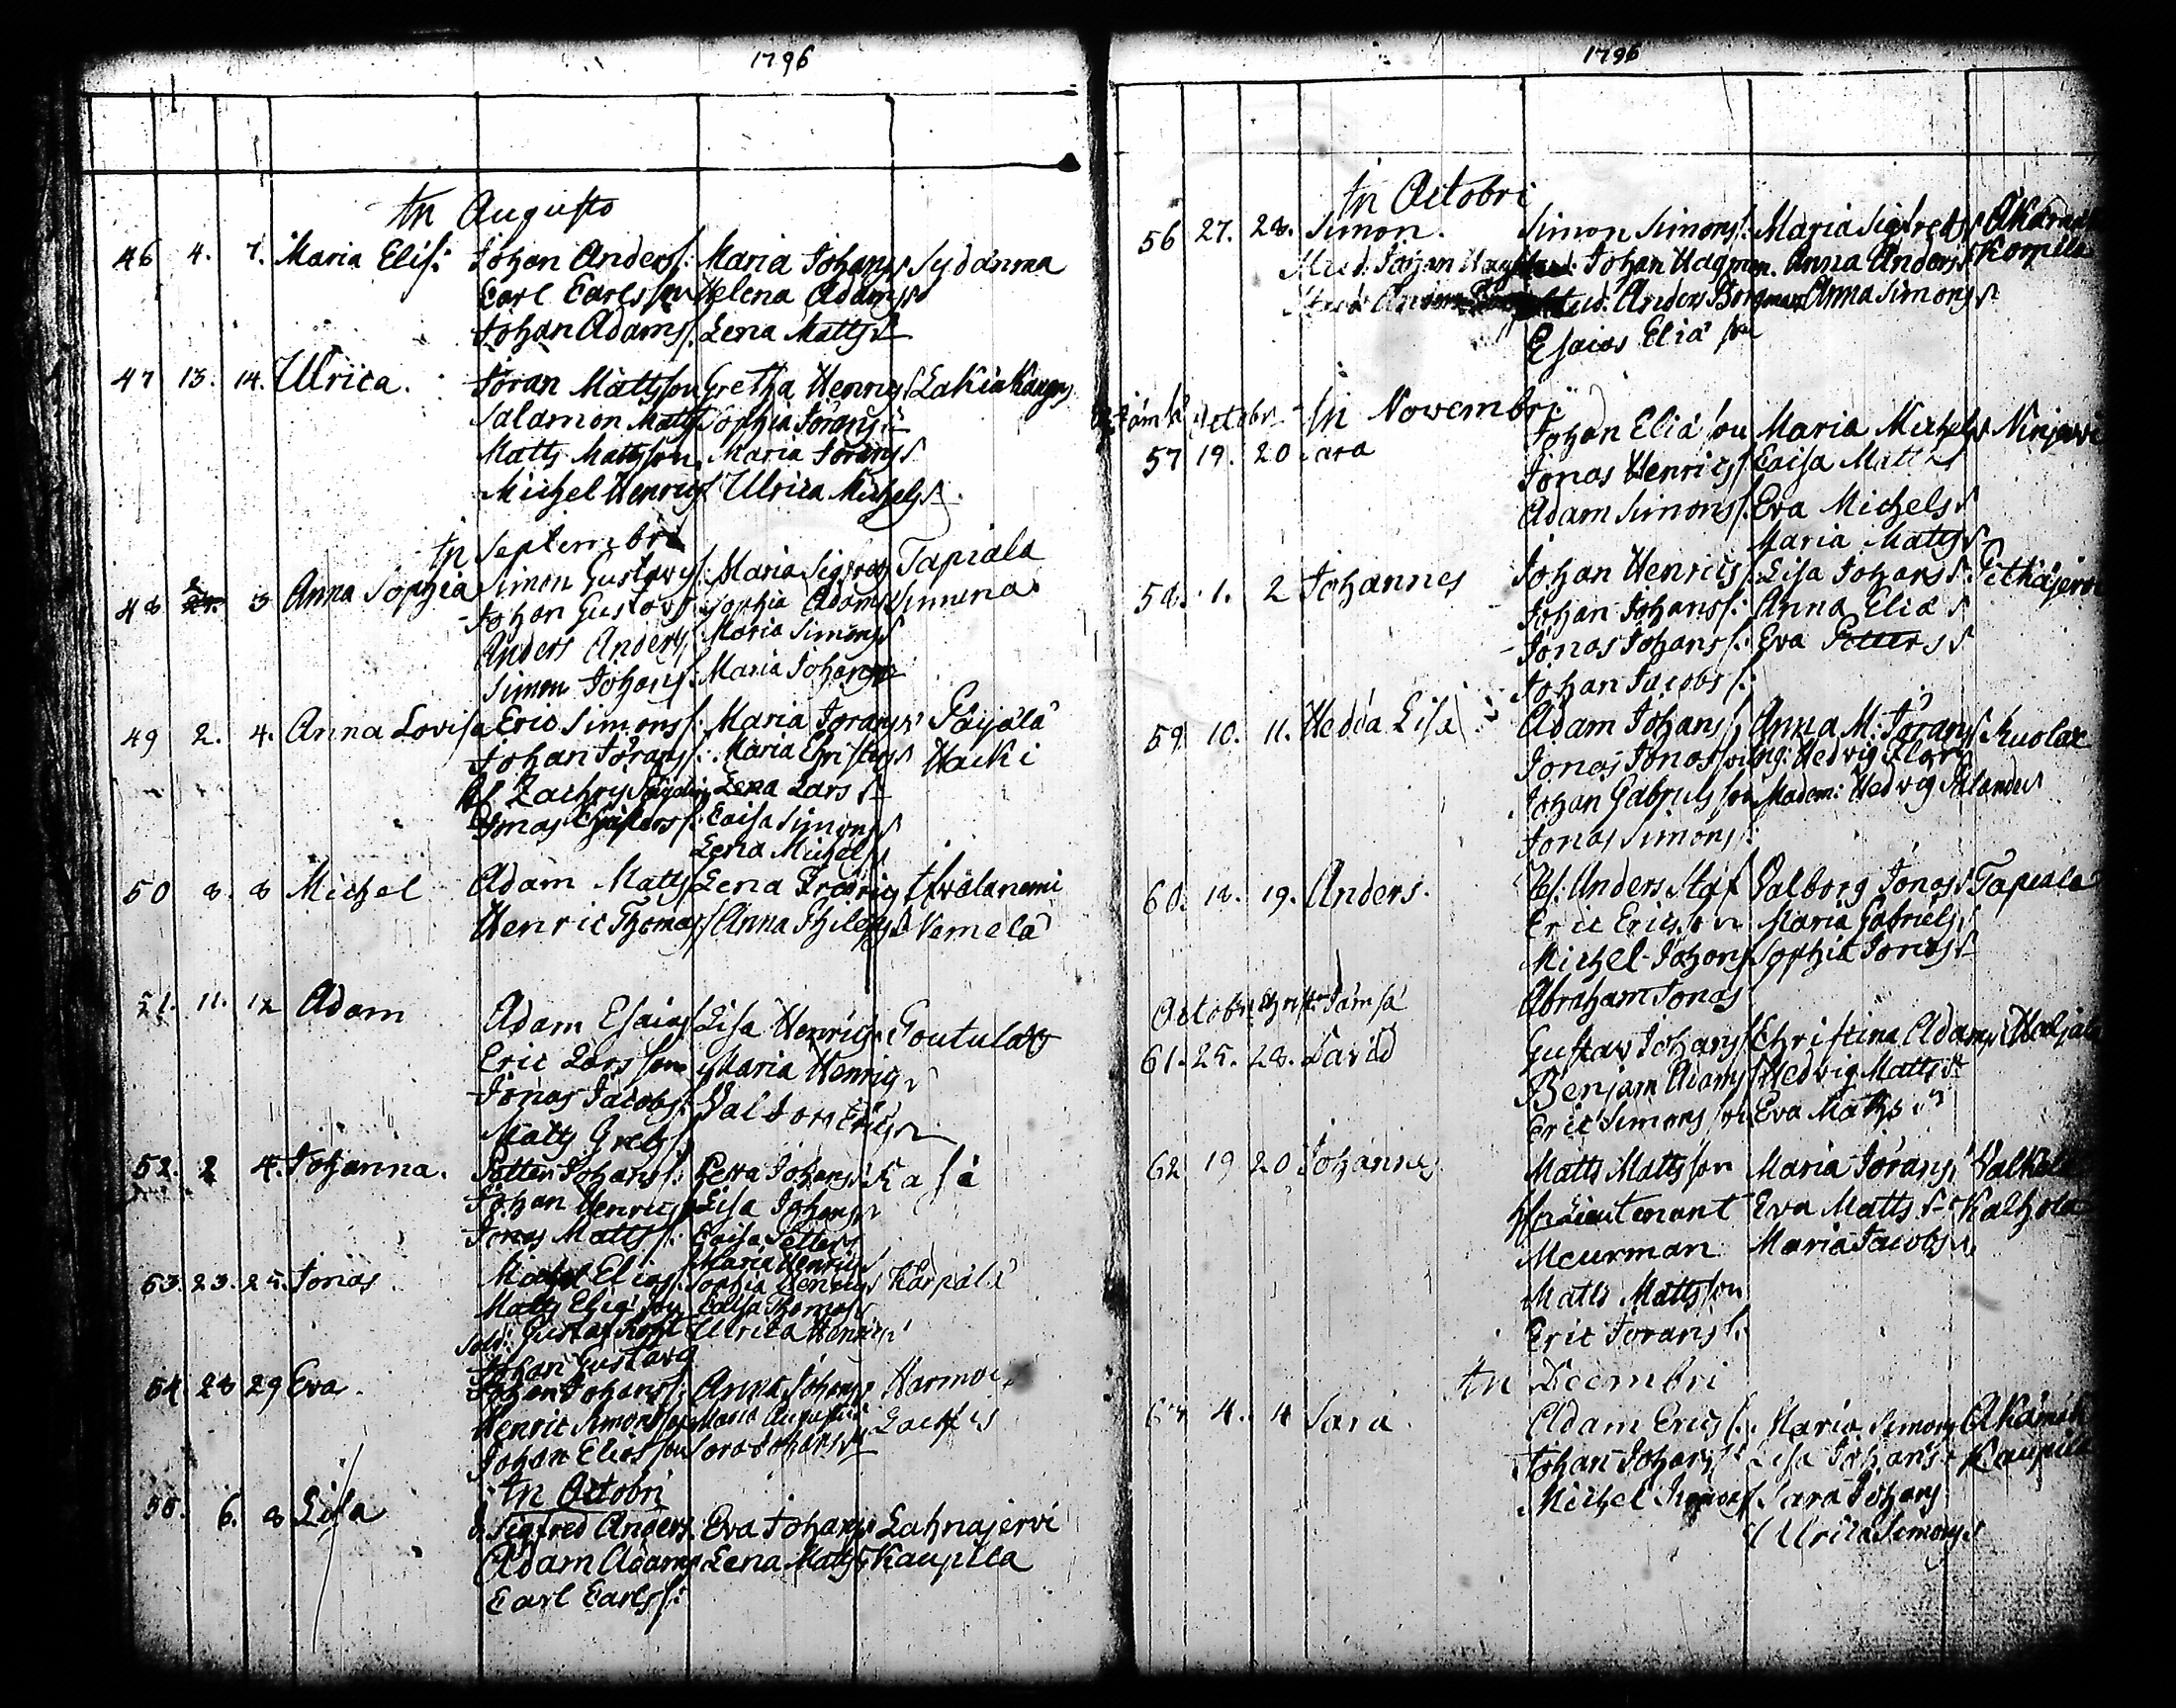 1796
In Augusto
46 4. 7. Maria Elis: Johan Anders: Maria Johans Sydänma
Carl Carlsson Helena Adams
Johan Adams: Lena Matts
47 13. 14. Ulrica. Jöran Mattsson Gretha Henrics Lakia Kangas
Salamon Matts Sophia Jörans
Matts Mattsson Maria Jörans
Michel Henrics Ulrica Michels
In Septembri
48 2 3 Anna Sophia Simon Gustavs: Maria Sigfreds Tapiala
Johan Gustavs Sophia Adams Simuna
Anders Anders: Maria Simons
Simon Johans: Maria Johans
49 2. 4. Anna Lovisa Eric Simons: Maria Jörans Päijälä
Johan Jörans: Maria Christers Hacki
Zachrys Lena Lars
Jonas Christers: Caisa Simons
Lena Michels
50 8. 8 Michel Adam Matts Lena Fredrics
Henric Thomas: Anna Philips Vemelä
51. 11. 12 Adam Adam Esaias Lisa Henrics Goutula
Eric Larsson Maria Henrics
Jonas Jacobs: Valborg Erics
Matts Grels
52. 2 4. Johanna. Petter Johans: Johans Kasa
Johan Henrics Lisa Johans
Jonas Matts: Caisa Petters
Maria Henrics
53. 23. 25. Jonas Elias: Sophia Henrics Kärpälä
Matts Elias son Caisa Thomas
Sold: Gustaf Ulrica Henrics
Johan Gustavs
54 28 29 Eva. Johan Johans: Anna Johans Harmoi
Henric Simonsson Maria August
Johan Eliasson Sara Johans
In Octobri
55. 6. 8 Lisa Sigfred Anders. Eva Johans Lahnajervi
Adam Adams Lena Matts Kaupila
Carl Carls:
1796
In Octobri
56 27. 28. Simon. Simon Simons: Maria Sigfreds
Johan Hagman. Anna Anders Kompila
Stud. Anders Borgman Anna Simons
Esaias Elia son
Octobr In Novembri
57 19. 20 Sara Johan Elia son Maria Michels
Jonas Henrics: Caisa Matts
Adam Simons: Eva Michels
Maria Matts
58. 1. 2 Johannes Johan Henrics: Lisa Johans Pitkäjervi
Johan Johans: Anna Elia
Jonas Johans: Eva Petters
Johan Jacobs:
59 10. 11. Hedda Lisa Adam Johans Anna M: Jörans Kuolax
Jonas Jonasson Hedvig
Johan Gabriels son Madem: Hedvig
Jonas Simons:
60. 18. 19. Anders. Anders Staf Valborg Jonas Tapiala
Eric Ericsson Maria Gabriels
Michel Johans Sophia Jonas
Abraham Jonas
Octobr Christ: Jämsä
61. 25. 28. David Gustav Johans Christina Adams
Benjam Adams Hedvig Matts
Eric Simons son Eva Matts
62 19 20 Johannes Matts Mattsson Maria Jörans
Lieutenant Eva Matts Kalhola
Meurman Maria Jacobs
Matts Mattsson
Eric Jörans:
In Decembri
63 4. 4 Sara. Adam Erics: Maria Simons
Johan Johans: Lisa Johans Kaupila
Michel Sara Johans
Ulrica Simons